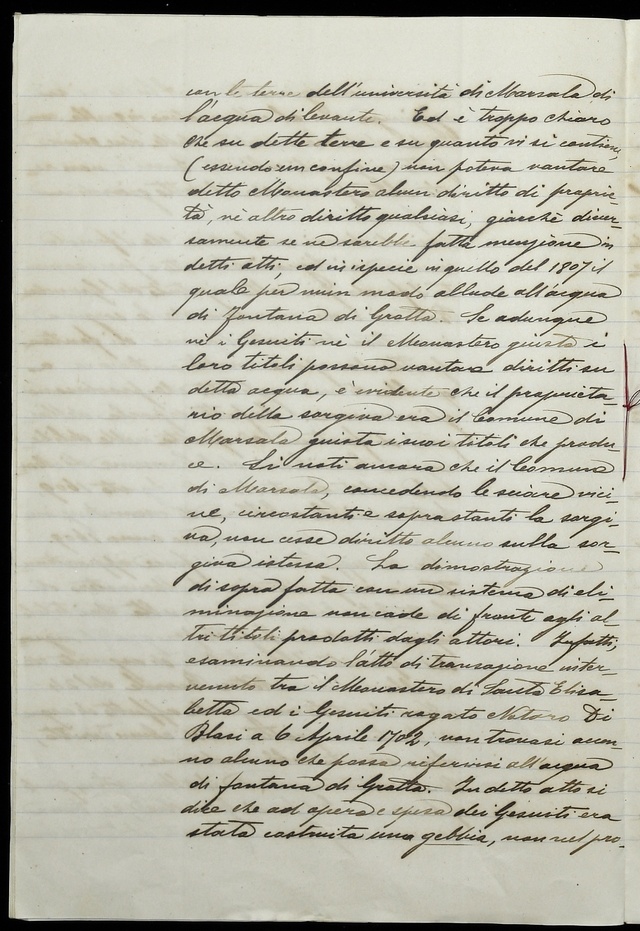 con le terre dell'università di Marsala di
l'acqua di levante. Ed è troppo chiaro
che su dette terre e su quanto vi si contiene,
(essendo un confine) non poteva vantare
detto Monastero alcun diritto di proprie-
tà, nè altro diritto qualsiasi, giacchè diver-
samente se ne sarebbe fatta menzione in
detti atti, ed in ispecie in quello del 1807 il
quale per niun modo allude all'acqua
di Fontana di Grotta. Se adunque
nè i Gesuiti nè il Monastero giusta i
loro titoli possono vantare diritti su
detta acqua, è evidente che il proprieta-
rio della sorgiva era il Comune di
Marsala giusta i suoi titoli che produ-
ce. Si noti ancora che il Comune
di Marsala, concedendo le sciare vici-
ne, circostanti e soprastanti la sorgi-
va, non cesse diritto alcuno sulla sor-
giva istessa. La dimostrazione
di sopra fatta con un sistema di eli-
minazione non cade di fronte agli al-
tri titoli prodotti dagli attori. Infatti,
esaminando l'atto di transazione inter-
venuto tra il Monastero di Santa Elisa-
betta ed i Gesuiti rogato Notaro Di
Blasi a 6 Aprile 1702, non trovasi accen-
no alcuno che possa riferirsi all'acqua
di fontana di Grotta. In detto atto si
dice che ad opera e spesa dei Gesuiti era
stata costruita una gebbia, non nel pro-